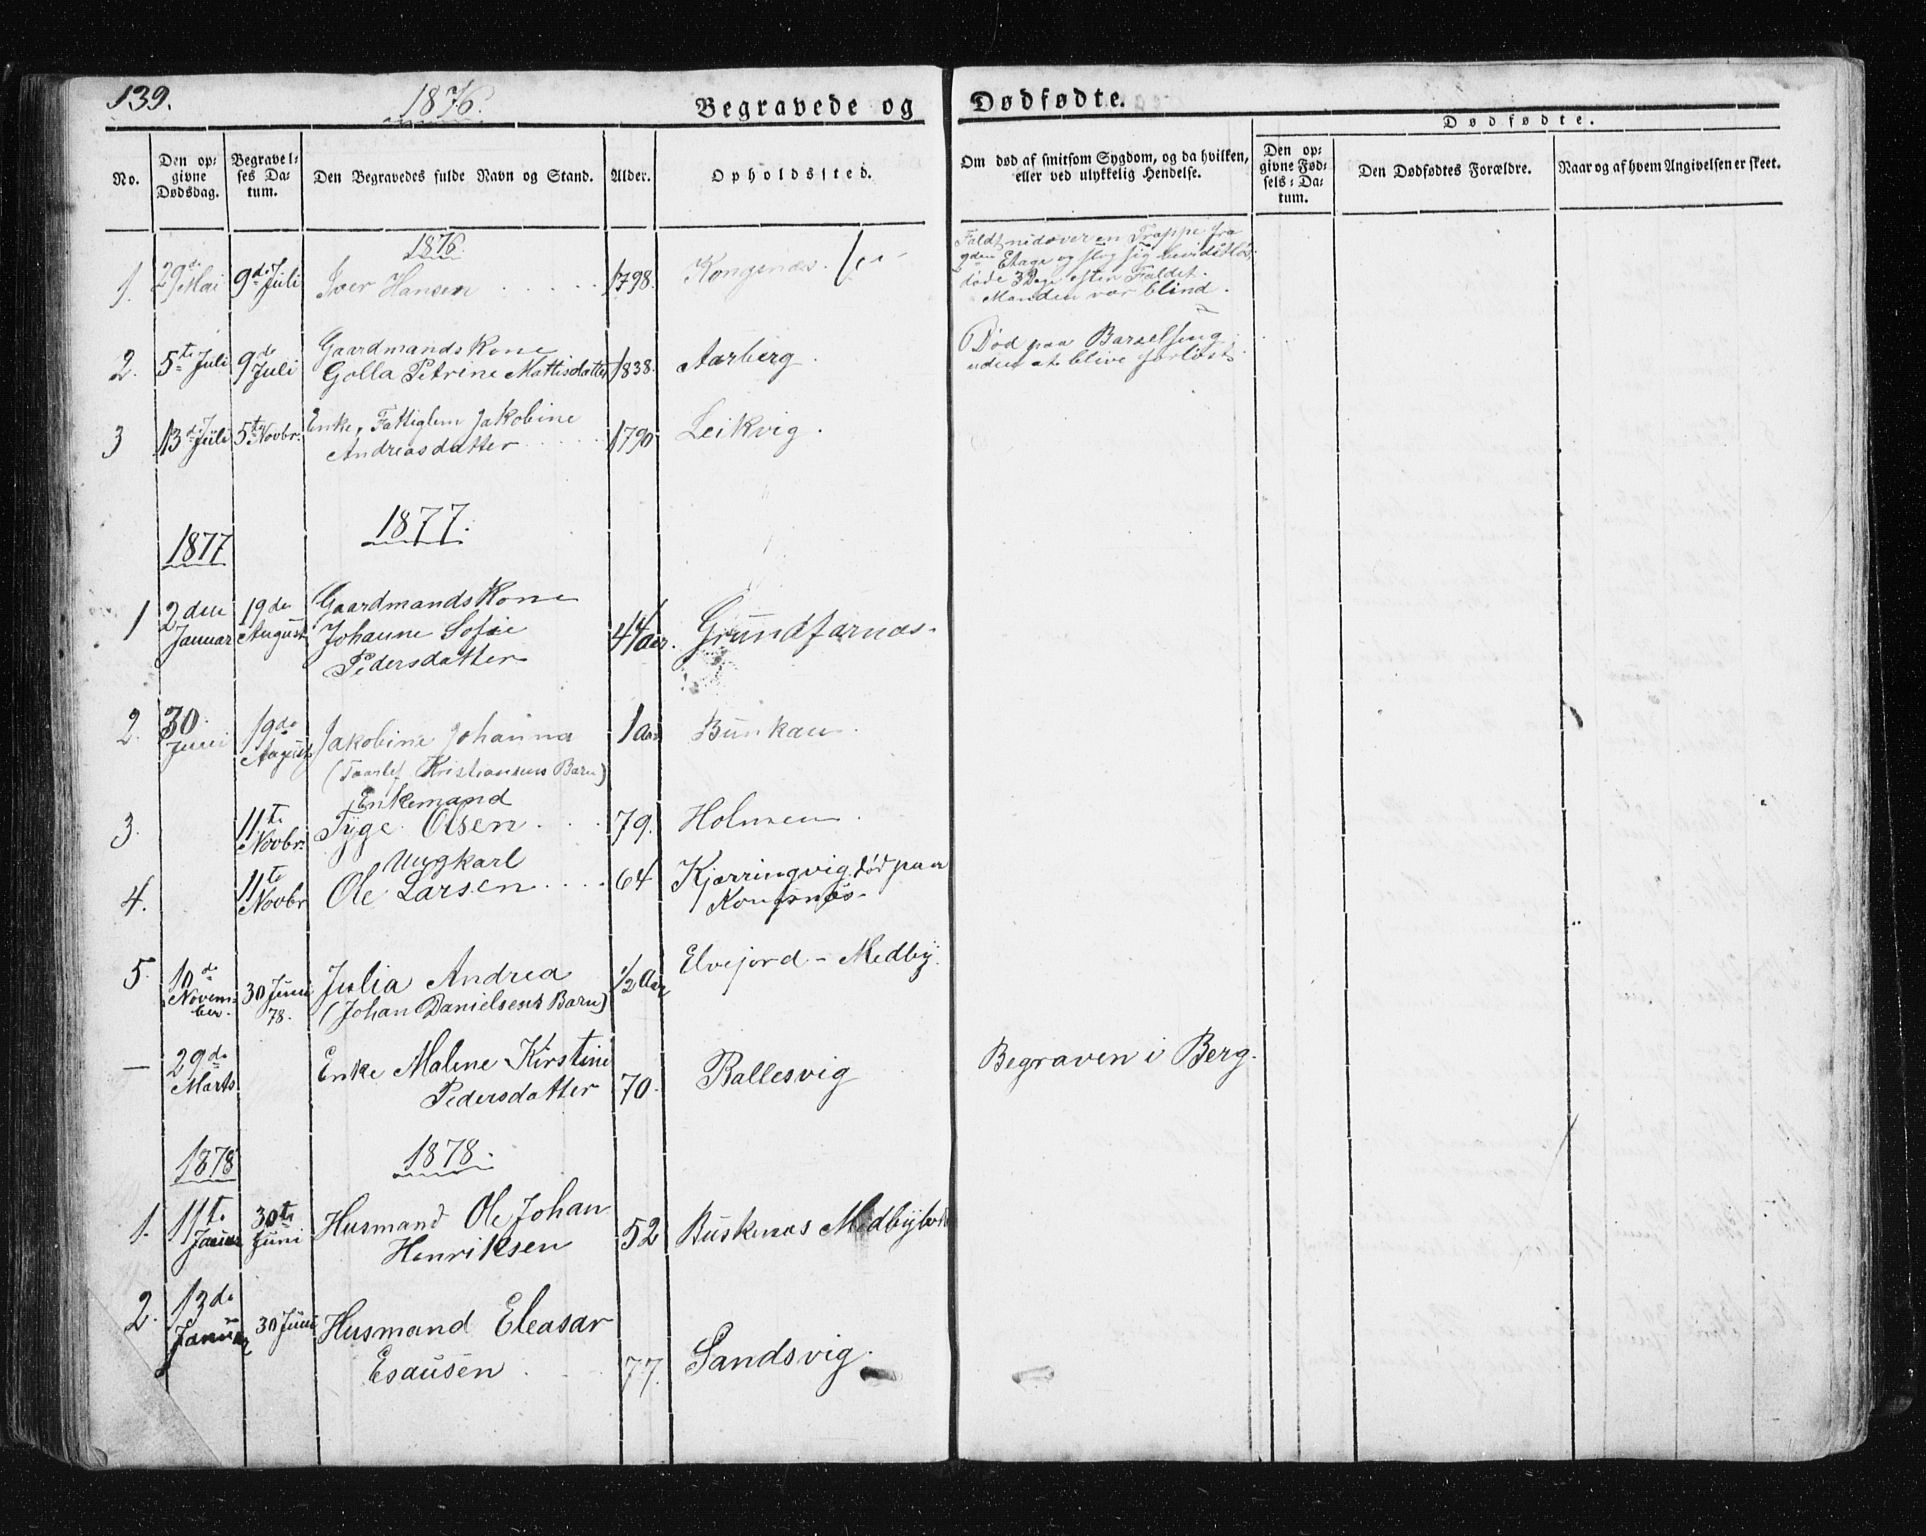 139.
1876.
Begravede og Dødfødte.
Dødfødte.
No.
Den opgivne Dødsdag.
Begravelses Datum.
Den Begravedes fulde Navn og Stand.
Alder.
Opholdssted.
Om død af smitsom Sygdom, og da hvilken, eller ved ulykkelig Hendelse.
Den opgivne Fødsels-Datum.
Den Dødfødtes Forældre.
Naar og af hvem Angivelsen er skeet.
1876.
1. 29de Mai 9de Juli Iver Hansen 1798. Kongsnæs.
Faldt nidover en Trappe fra
den Etage og slog sig
døde 3 Dage efter Faldet.
Manden var blind.
2. 5te Juli 9de Juli Gaardmandskone
Golla Petrine Mattisdatter 1838. Aarberg.
Død paa Barselseng
uden at blive forløst.
3 13de Juli 5te Novbr: Enke, Fattiglem Jakobine
Andreasdatter 1790 Leikvig.
1877.
1877
1 2den Januar 19de August Gaardmandskone
Johanne Sofie
Pedersdatter 44 Aar. Grundfarnæs.
2. 30 Juni 19de August Jakobine Johanna 1 Aar Bunkan.
(Taarlef Kristiansens Barn)
3. 11te Novbr: Enkemand
Tyge Olsen 79. Holmen.
4. 11te Novbr Ungkarl
Ole Larsen 64 Kjærringvig død paa
Kongsnæs.
5. 10de November. 30 Juni 78. Julia Andrea ½ Aar Elvejord - Medby.
(Johan Danielsens Barn)
— 29de Marts Enke Malene Kirstine
Pedersdatter 70. Ballesvig Begraven i Berg.
1878
1878.
1. 11te Januar 30te Juni Husmand Ole Johan
Henriksen 52 Buskenæs
2. 13de Januar 30 Juni Husmand Eleasar
Esausen 77. Sandsvig.